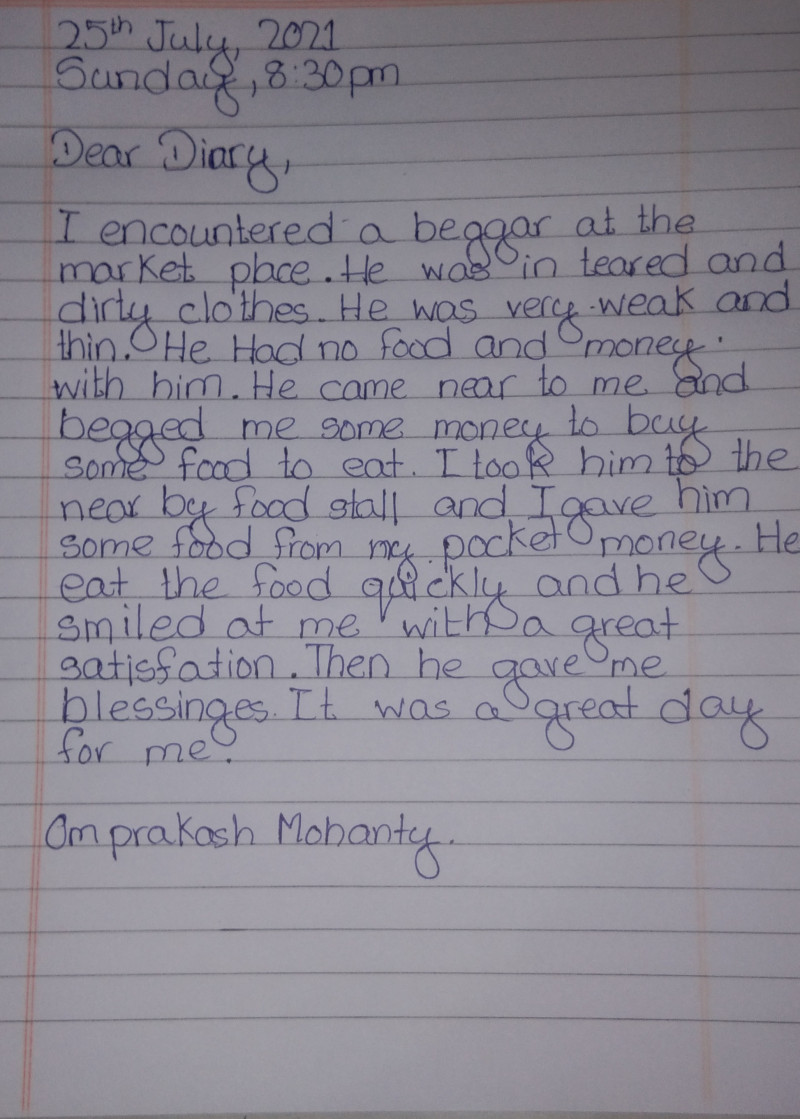 25th July, 2021
Sunday, 8:30pm
Dear Diary,
I encountered a beggar at the
market place. He was in teared and
dirty clothes. He was very weak and
thin. He Had no food and money.
with him. He came near to me and
begged me some money to buy
some food to eat. I took him to the
near by food stall and I gave him
some food from my pocket money. He
eat the food quickly and he
smiled at me with a great
satisfation. Then he gave me
blessinges. It was a great day
for me.
Omprakash Mohanty.